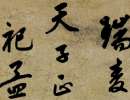 瑞麦
天子正
祀孟